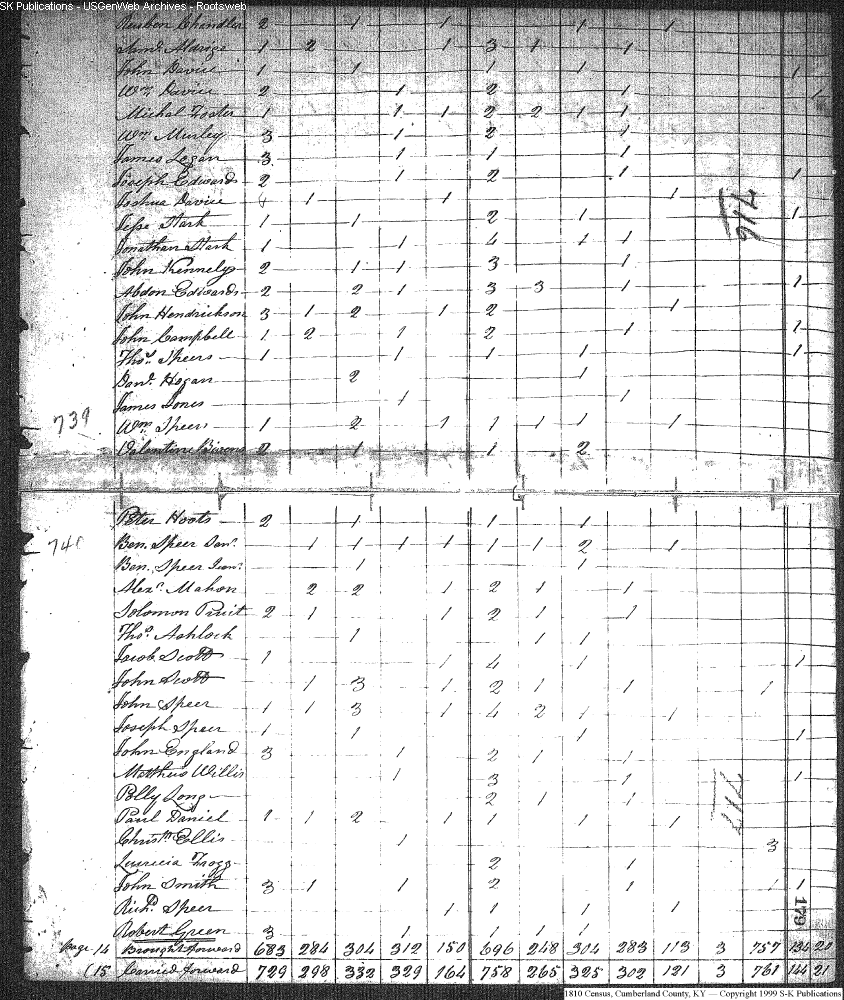 SK Publications - USGenWeb Archives - Rootsweb
Reuben Chandler 2 1 1 1 1
Saml. Aldrige 1 2 1 3 1 1
John Davice 1 1 1 1 1
Wm. Davice 2 1 2 1 1
Michal Foster 1 1 1 2 2 1 1
Wm. Murley 3 1 2 1
James Logan 3 1 1 1
Joseph Edwards 2 1 2 1 1
Joshua Davice 1 1 1
716
Jesse Stark 1 1 2 1 1
Jonathan Stark 1 1 4 1 1
John Kennely 2 1 1 3 1
Abdon Edwards 2 2 1 3 3 1 1
John Hendrickson 3 1 2 1 2 1
John Campbell 1 2 1 2 1 1
Thos. Speers 1 1 1 1 1
Danl. Hogan 2 1
James Jones 1 1
739 Wm. Speers 1 2 1 1 1 1 1
Valentine 2 1 1 2
Peter Hoots 2 1 1 1
740 Ben. Speer Senr. 1 1 1 1 1 1 2 1
Ben. Speer Junr. 1 1
Alexr. Mahon 2 2 1 2 1 1
Solomon Pruit 2 1 1 2 1 1
Thos. Ashlock 1 1 1
Jacob Scott 1 1 4 1 1
John Scott 1 3 1 2 1 1 1
John Speer 1 1 3 1 4 2 1 1
Joseph Speer 1 1 1 1
John England 3 1 2 1 1
Matthew Willis 1 3 1 1
Polly Long 2 1 1
717
Paul Daniel 1 1 2 1 1 1 1
Christn. Ellis 1 3
Lucrecia Frogg 2 1
John Smith 3 1 1 2 1 1 1
179
Richd. Speer 1 1 1 1
Robert Green 3 1 1 1 1
Page 14 Brought forward 683 284 304 312 150 696 248 304 283 113 3 757 134 20
(15 Carried forward 729 298 332 329 164 758 265 325 302 121 3 761 144 21
1810 Census, Cumberland County, KY — Copyright 1999 S-K Publications